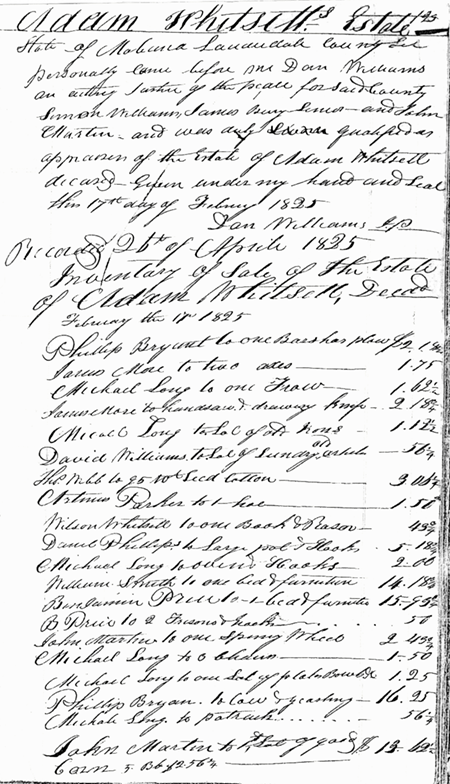 Adam Whitsett,s Estate
State of Alabama Lauderdale County Set
personally came before me Dan Williams
an acting Justice of the peace for said County
Simon Williams, James Bury Senor and John
Martin and was duly qualified as
apprasors of the Estate of Adam Whitsett
decased Given under my hand and Seal
this 17th day of Februey 1825
Dan Williams JP
Recorded 26th of Aprile 1825
Inventory of Sale of the Estate
of Adam Whitsett, Decad
Februey the 17 1825
Phillip Bryant to one Barshas plow $2.18¾
James More to two axes 1.75
Michael Long to one Frow 1.62½
James More to handsaw & drawing knife 2 18¾
Micall Long to Lot of old Irons 1.12½
David Williams to Lot of Sundry old 56¼
Ths Webb to 95 wt Seed Cotton 3 06¼
Parker to 1 hoe 1.50
Wilson Whitsett to one Book & Reasor 43¾
Daniel Phillips to Large pot & Hooks 5.18¾
Michael Long to Hooks 2.00
William Smith to one bed & furniture 14.18¾
Benjamin Price to 1 bed & furniture 15.93¾
B Price to 2 & hooks 50
John Martin to one Spinng Wheel 2 43¾
Michael Long to 6 Chears 1.50
Michael Long to one Lot of plates 1.25
Phillip Bryan to Cow & yearling 16.25
Michale Long to potrack 56¼
John Martin to Lot of $
Corn 5 Bb $2 56¼